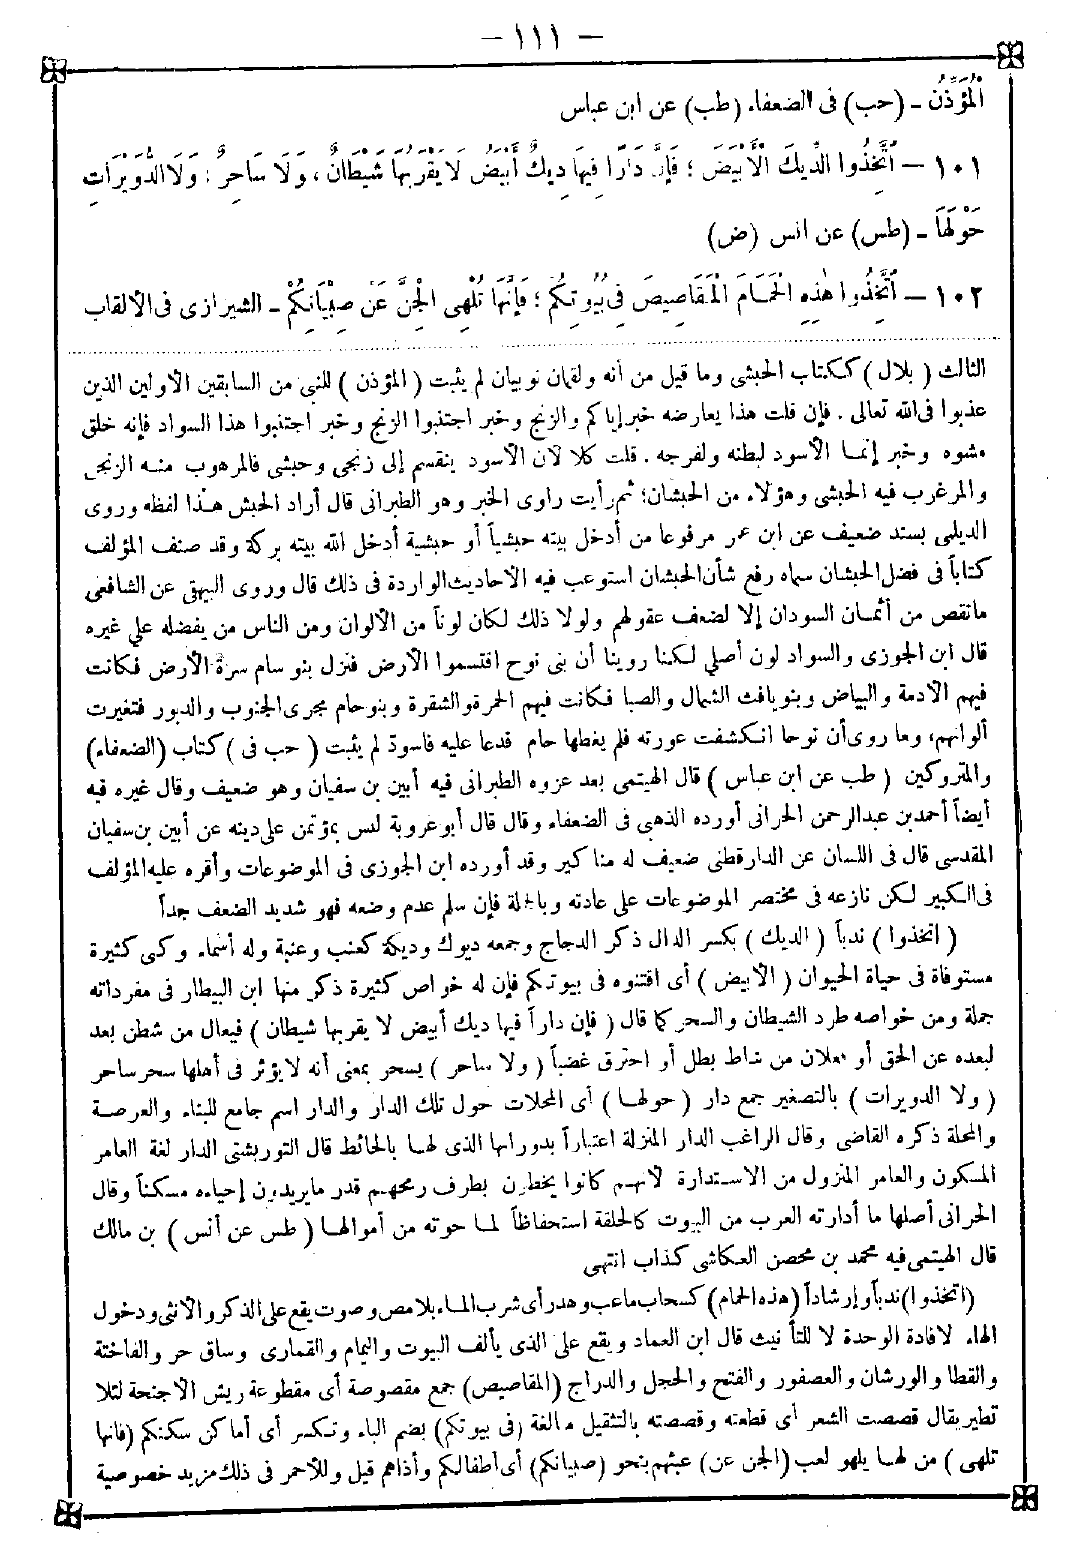 — ١١١ —
الْمُؤَذِّنُ ـ (حب) فى الضعفاء (طب) عن ابن عباس
١٠١ — اتَّخِذُوا الدِّيكَ الْأَبْيَضَ ؛ فَإِنَّ دَارًا فِيهَا دِيكٌ أَبْيَضُ لَا يَقْرَبُهَا شَيْطَانٌ ، وَلَا سَاحِرٌ ، وَلَا الدُّوَيْرَاتِ
حَوْلَهَا ـ (طس) عن انس (ض)
١٠٢ — اتَّخِذُوا هٰذِهِ الْحَمَامَ الْمَقَاصِيصَ فِى بُيُوتِكُمْ ؛ فَإِنَّهَا تُلْهِى الْجِنَّ عَنْ صِبْيَانِكُمْ ـ الشيرازى فى الألقاب
الثالث ( بلال ) ككتاب الحبشى وما قيل من أنه ولقمان نوبيان لم يثبت ( المؤذن ) للنبى من السابقين الأولين الذين
عذبوا فى الله تعالى . فإن قلت هذا يعارضه خبر إياكم والزنج وخبر اجتنبوا الزنج وخبر اجتنبوا هذا السواد فإنه خلق
مشوه وخبر إنما الأسود لبطنه ولفرجه . قلت كلا لأن الأسود ينقسم إلى زنجى وحبشى فالمرهوب منه الزنجى
والمرغرب فيه الحبشى وهؤلاء من الحبشان؛ ثم رأيت راوى الخبر وهو الطبرانى قال أراد الحبش هذا لفظه وروى
الديلمى بسند ضعيف عن ابن عمر مرفوعا من أدخل بيته حبشياً أو حبشية أدخل الله بيته بركة وقد صنف المؤلف
كتاباً فى فضل الحبشان سماه رفع شأن الحبشان استوعب فيه الأحاديث الواردة فى ذلك قال وروى البيهقى عن الشافعى
ما نقص من أثمان السودان إلا لضعف عقولهم ولولا ذلك لكان لوناً من الألوان ومن الناس من يفضله على غيره
قال ابن الجوزى والسواد لون أصلي لكنا روينا أن بنى نوح اقتسموا الأرض فنزل بنو سام سرة الأرض فكانت
فيهم الأدمة والبياض وبنو يافث الشمال والصبا فكانت فيهم الحمرة والشقرة وبنو حام مجرى الجنوب والدبور فتغيرت
ألوانهم، وما روى أن نوحا انكشفت عورته فلم يغطها حام قدعا عليه فاسودّ لم يثبت ( حب فى ) كتاب (الضعفاء)
والمتروكين ( طب عن ابن عباس ) قال الهيتمى بعد عزوه الطبرانى فيه أبين بن سفيان وهو ضعيف وقال غيره فيه
أيضاً أحمد بن عبد الرحمن الحرانى أورده الذهبى فى الضعفاء وقال قال أبو عروبة ليس بمؤتمن على دينه عن أبين بن سفيان
المقدسى قال فى اللسان عن الدارقطنى ضعيف له مناكير وقد أورده ابن الجوزى فى الموضوعات وأقره عليه المؤلف
فى الكبير لكن نازعه فى مختصر الموضوعات على عادته وبالجملة فإن سلم عدم وضعه فهو شديد الضعف جداً
( اتخذوا ) ندباً ( الديك ) بكسر الدال ذكر الدجاج وجمعه ديوك وديكة كعنب وعنبة وله أسماء وكنى كثيرة
مستوفاة فى حياة الحيوان ( الأبيض ) أى اقتنوه فى بيوتكم فإن له خواص كثيرة ذكر منها ابن البيطار فى مفرداته
جملة ومن خواصه طرد الشيطان والسحر كما قال ( فإن داراً فيها ديك أبيض لا يقربها شيطان ) فيعال من شطن بعد
لبعده عن الحق أو فعلان من شاط بطل أو احترق غضباً ( ولا ساحر ) يسحر بمعنى أنه لا يؤثر فى أهلها سحر ساحر
( ولا الدويرات ) بالتصغير جمع دار ( حولها ) أى المحلات حول تلك الدار والدار اسم جامع للبناء والعرصة
والمحلة ذكره القاضى وقال الراغب الدار المنزلة اعتباراً بدورانها الذى لها بالحائط قال التوربشتى الدار لغة العامر
المسكون والعامر المنزول من الاستدارة لأنهم كانوا يخطون بطرف رمحهم قدر ما يريدون إحياءه مسكناً وقال
الحرانى أصلها ما أدارته العرب من البيوت كالحلقة استحفاظاً لما حوته من أموالها ( طس عن أنس ) بن مالك
قال الهيتمى فيه محمد بن محصن العكاشى كذاب انتهى
(اتخذوا) ندباً وإرشاداً (هذه الحمام) كسحاب ما عب وهدر أى شرب الماء بلا مص وصوت يقع على الذكر والأنثى ودخول
الهاء لافادة الوحدة لا للتأنيث قال ابن العماد ويقع على الذى يألف البيوت واليمام والقمارى وساق حر والفاختة
والقطا والورشان والعصفور والفتح والحجل والدراج (المقاصيص) جمع مقصوصة أى مقطوعة ريش الأجنحة لئلا
تطير يقال قصصت الشعر أى قطعته وقصصته بالتثقيل مبالغة (فى بيوتكم) بضم الباء وتكسر أى أماكن سكنكم (فانها
تلهى ) من لها يلهو لعب (الجن عن) عبثهم بنحو (صبيانكم) أى أطفالكم وأذاهم قيل وللأحمر فى ذلك مزيد خصوصية